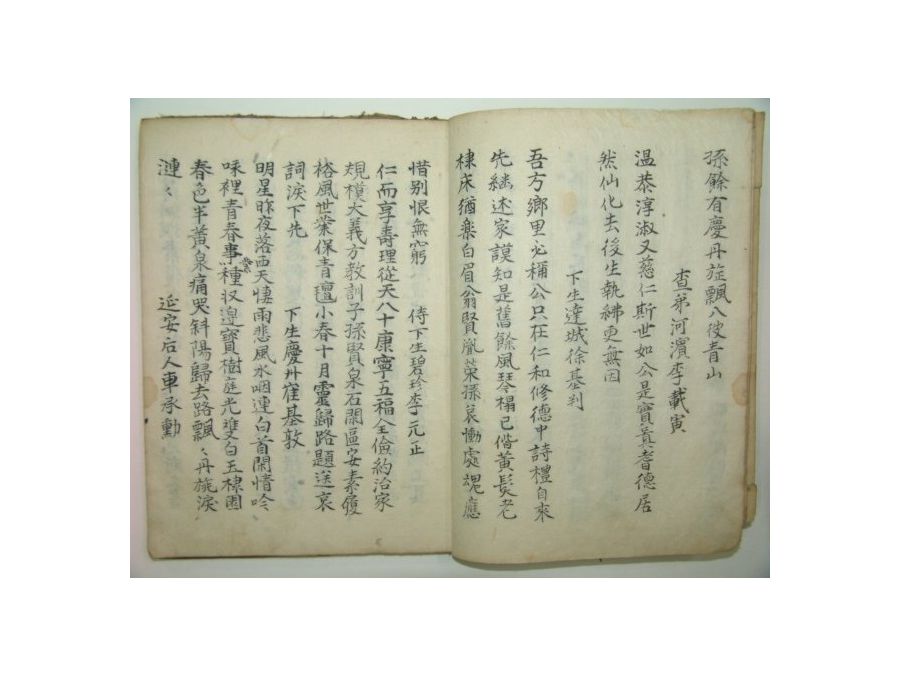 孫餘有慶丹旋飄八彼青山
査弟河濱李載寅
温恭淳淑又慈仁斯世如公是寶眞耆德居
然仙化去後生執紼更無因
下生達城徐基判
吾方鄉里必稱公只在仁和修德中詩禮自來
先繼述家謨知是舊餘風琴榻已偕黃髮老
棣床猶樂白眉翁賢胤榮孫哀慟處魂應
惜别恨無窮 侍下生碧珍李元正
仁而享壽理從天八十康寧五福全儉約治家
規模大義方教訓子孫賢泉石開區安素履
裕風世業保青氈小春十月靈歸路題送哀
詞淚下先 下生慶州崔基敦
明星昨夜落西天悽雨悲風水咽連白首閑情吟
咏裡青春事業種収邊寶樹庭光雙白玉棣園
春色半黃泉痛哭斜陽歸去路飄〻丹旐淚
漣〻 延安后人車承勳